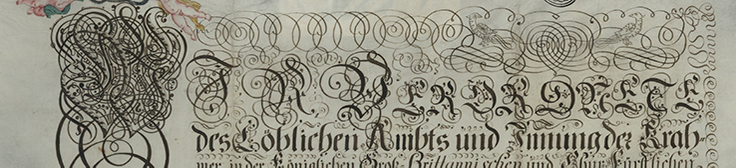 WIR VERORDNETE
des Löblichen Ambts und Innung der Krah-
mer in der Königlichen Groß-Brittannischen und Chur-Fürstlichen